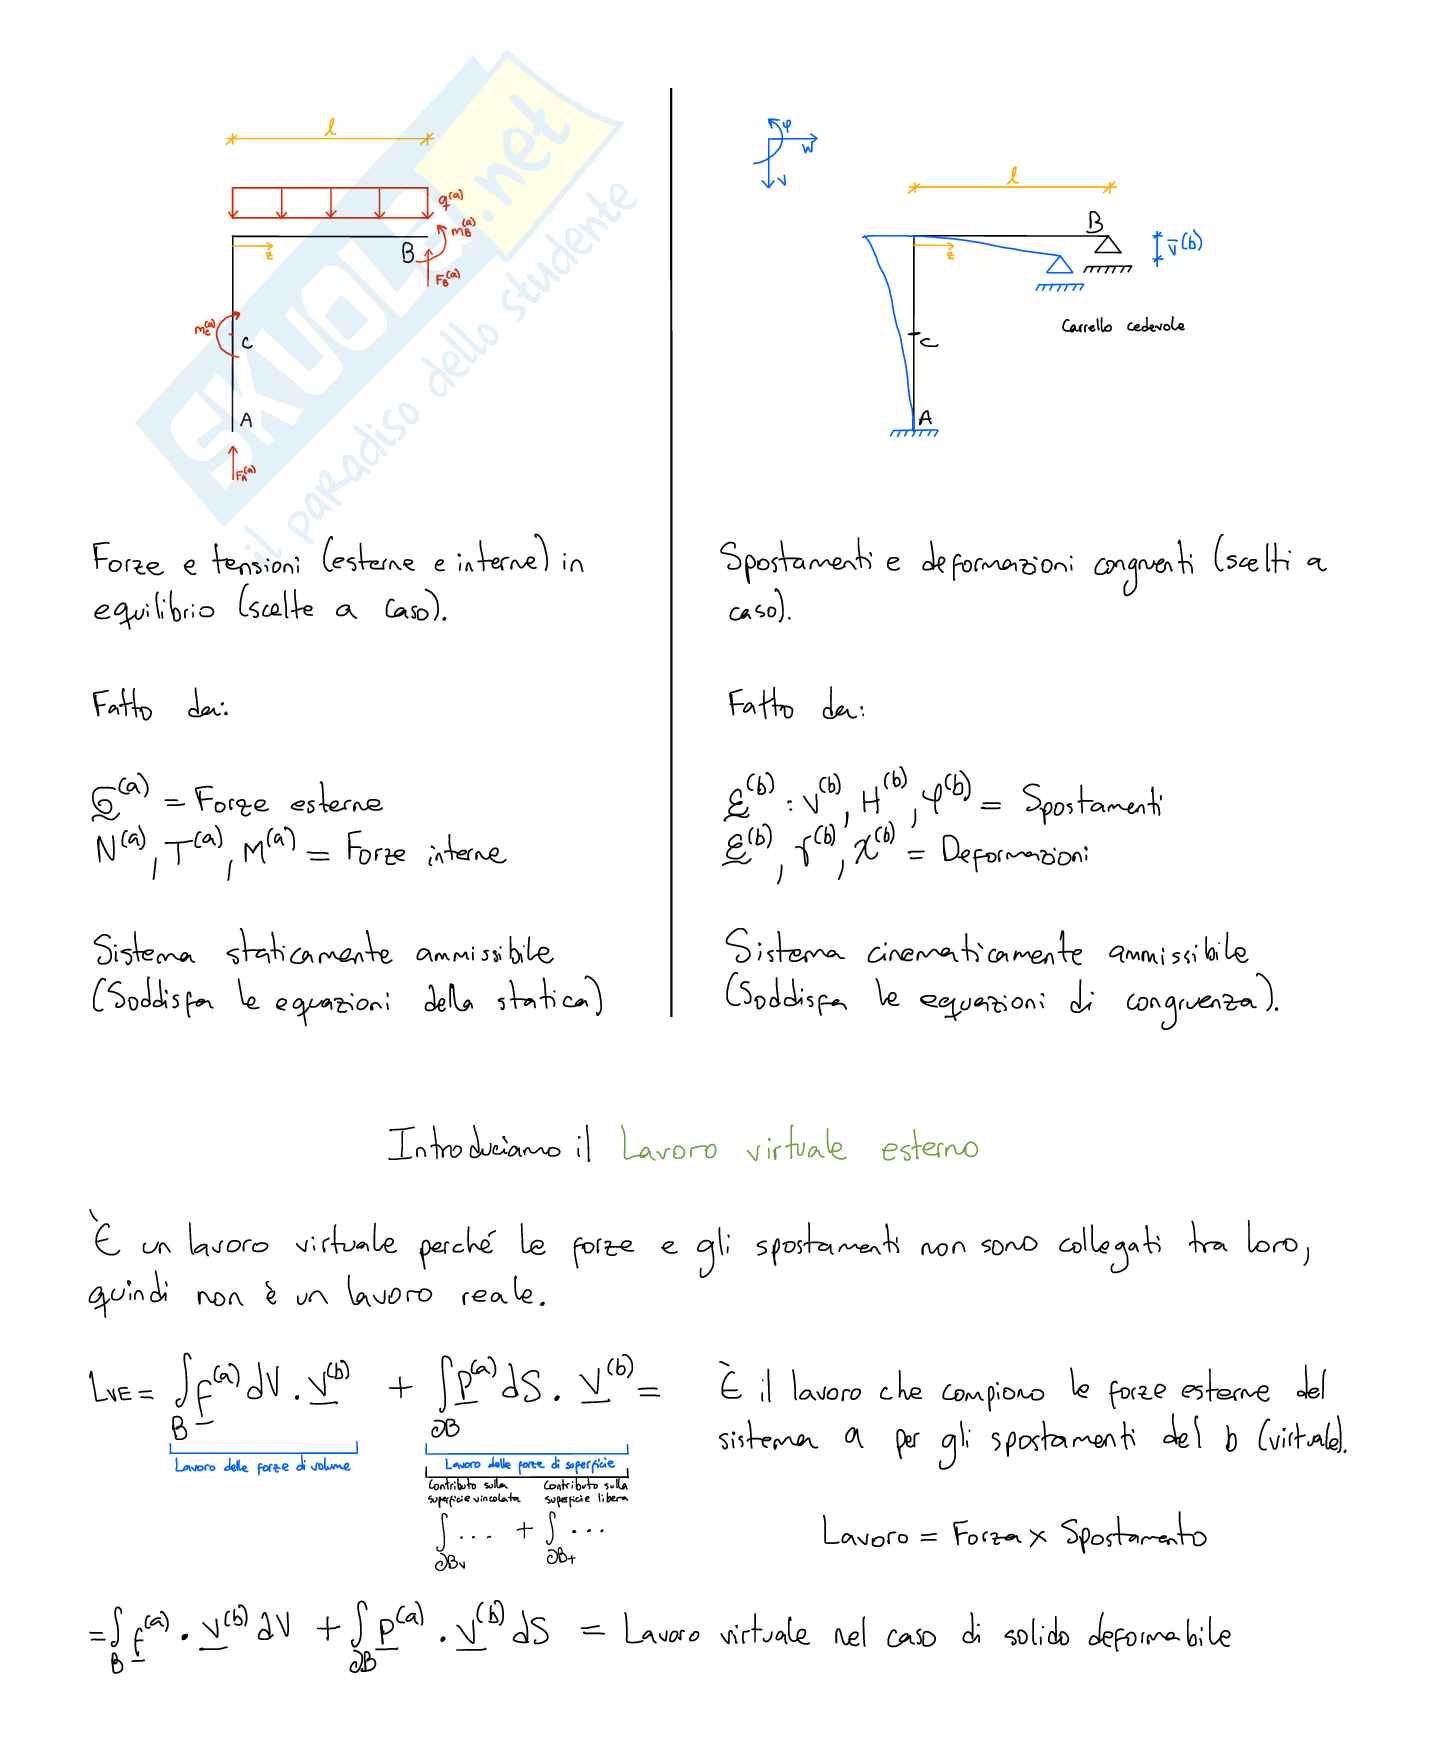 SKUOLA.net
il paradiso dello studente
l
q(a)
mB(a)
B
z
FB(a)
mC(a)
C
A
FA(a)
φ
w
v
l
B
z
v̄(b)
Carrello cedevole
C
A
Forze e tensioni (esterne e interne) in
equilibrio (scelte a caso).
Fatto da:
σ(a) = Forze esterne
N(a), T(a), M(a) = Forze interne
Sistema staticamente ammissibile
(Soddisfa le equazioni della statica)
Spostamenti e deformazioni congruenti (scelti a
caso).
Fatto da:
ε(b) : v(b), H(b), φ(b) = Spostamenti
ε(b), γ(b), χ(b) = Deformazioni
Sistema cinematicamente ammissibile
(Soddisfa le equazioni di congruenza).
Introduciamo il Lavoro virtuale esterno
È un lavoro virtuale perché le forze e gli spostamenti non sono collegati tra loro,
quindi non è un lavoro reale.
LVE = ∫B f(a) dV · v(b) + ∫∂B p(a) dS · v(b) =
Lavoro delle forze di volume
Lavoro delle forze di superficie
Contributo sulla superficie vincolata
Contributo sulla superficie libera
∫∂Bv ... + ∫∂Bt ...
È il lavoro che compiono le forze esterne del
sistema a per gli spostamenti del b (virtuale).
Lavoro = Forza x Spostamento
= ∫B f(a) · v(b) dV + ∫∂B p(a) · v(b) dS = Lavoro virtuale nel caso di solido deformabile